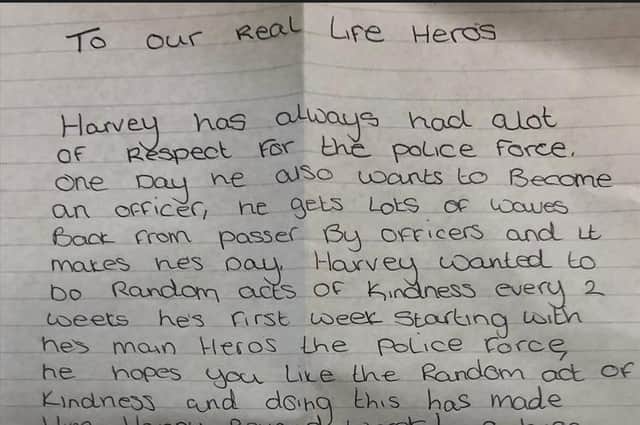 To our Real Life Hero's
Harvey has always had alot
OF Respect For the police force.
One Day he also wants to Become
an officer, he gets Lots of waves
Back from passer By officers and it
makes hes Day. Harvey wanted to
Do Random acts of Kindness every 2
weeks he's first week starting with
hes main Heros the Police force,
he hopes you Like the Random act of
Kindness and doing this has made